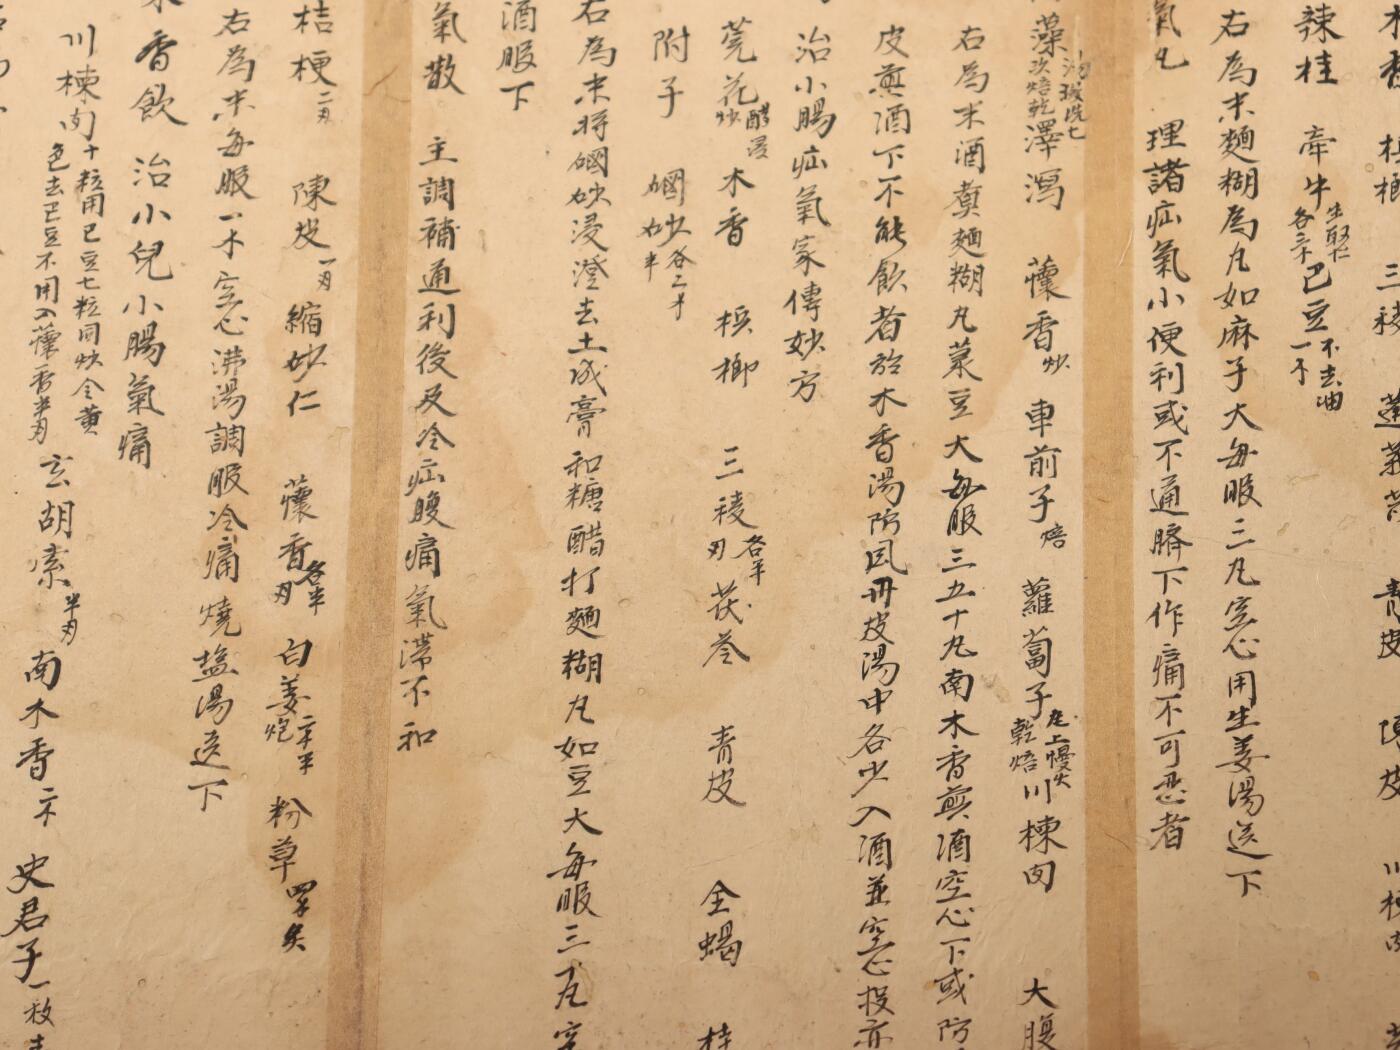 木香 梹榔 三稜 蓬莪 青皮 陳皮 川楝肉
辣桂 牽牛生取仁各 巴豆不去油
右為末麵糊為凡如麻子大每服三凡空心用生姜湯送下
氣凡 理諸疝氣小便利或不通臍下作痛不可忍者
藻洗七次焙乾 澤瀉 蘹香炒 車前子焙 蘿蔔子 乾焙 川楝肉 大腹
右為末酒煑麵糊凡菉豆大每服三五十凡南木香煎酒空心下或防
皮煎酒下不能飲者於木香湯防風冊皮湯中各少入酒並空心投亦
治小腸疝氣家傳妙方
莞花醋浸炒 木香 梹榔 三稜各半刄 茯苓 青皮 全蝎 桂
附子 硇妙各二
右為末將硇妙浸澄去土成膏和糖醋打麵糊凡如豆大每服三十凡空
酒服下
氣散 主調補通利後及冷疝腹痛氣滯不和
桔梗二刄 陳皮一刄 縮妙仁 蘹香各半刄 白姜炮 粉草
右為末每服一 空心沸湯調服冷痛燒塩湯送下
香飲 治小兒小腸氣痛
川楝肉十粒用巴豆七粒同炒令黄色去巴豆不用入蘹香半刄 玄胡索半刄 南木香 史君子一枚